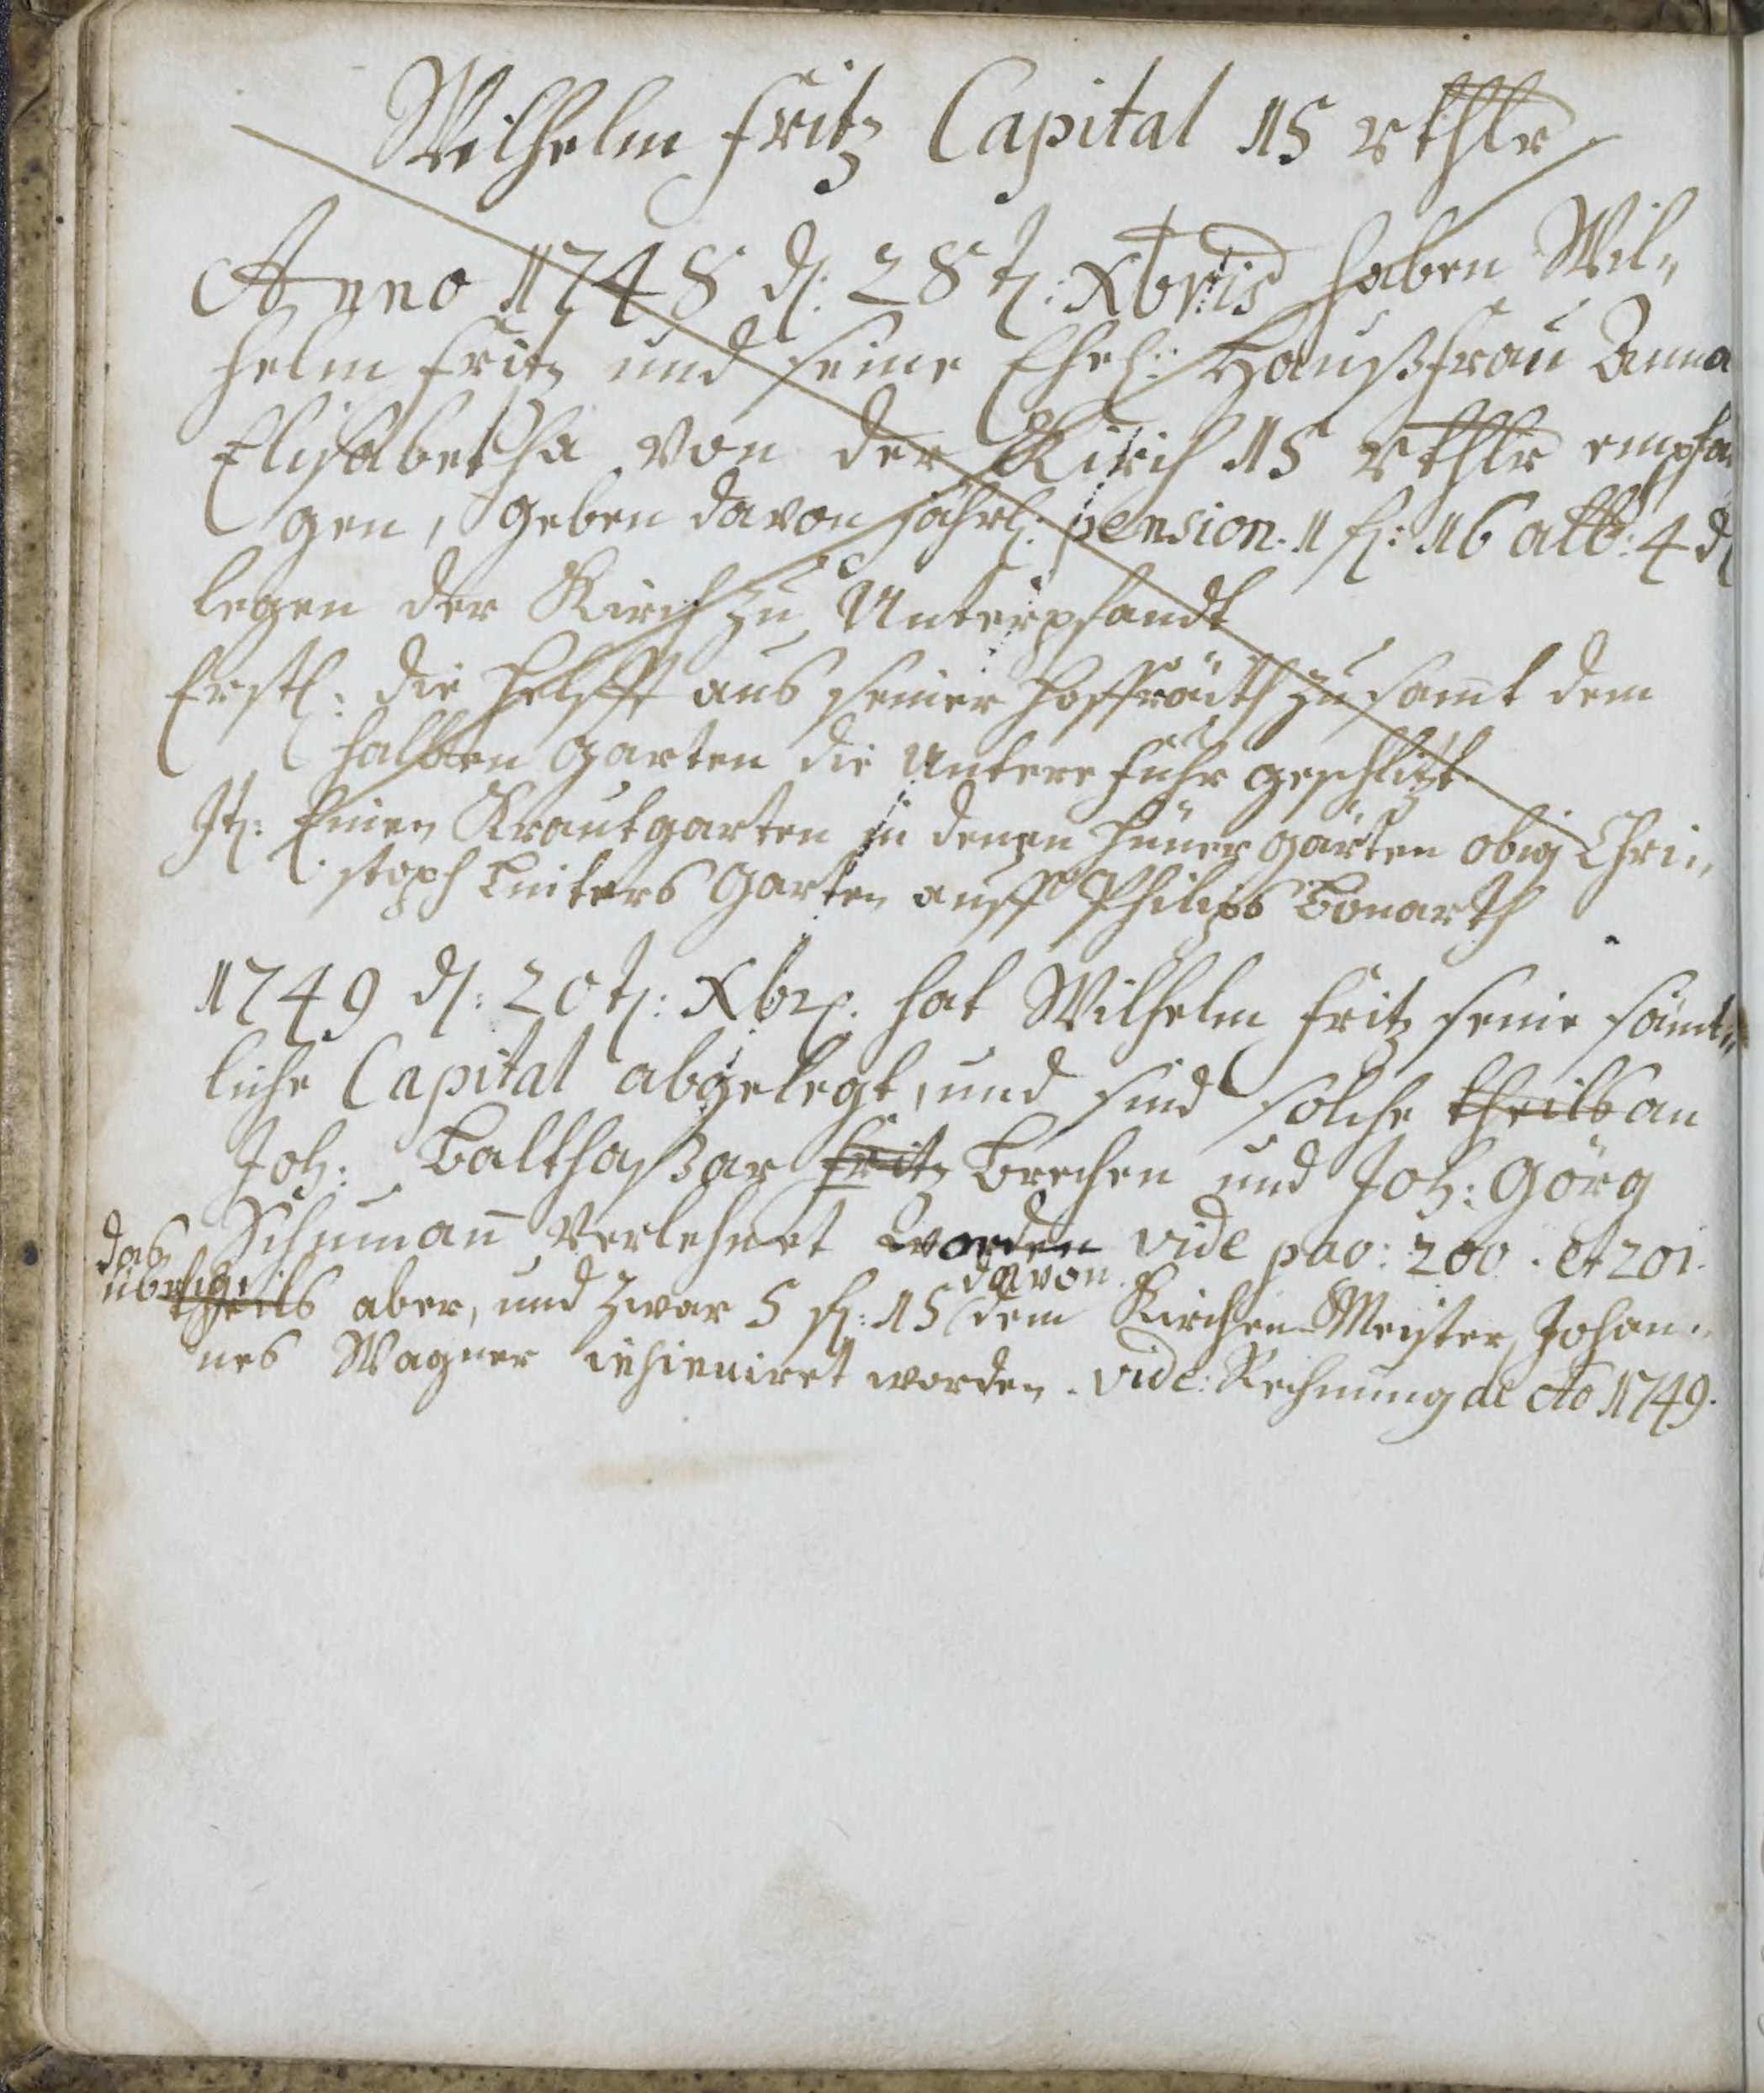 Wilhelm Fritz Capital 15 rthlr
Anno 1748 d: 28t: Xbris haben Wil„
helm Fritz und seine Ehel: Haußfrau Anna
Elisabetha von der Kirch 15 rthlr empfa
gen, geben davon jährl: pension. 1 fl: 16 alb: 4 d
legen der Kirch zu Unterpfandt
Erstl: die Helfft aus seiner Hoffräith zusamt dem
halben Garten die Untere Fuhr geschlitzt.
It: Einen Krautgarten in denen Hüner gärten obig Chri„
stoph Garten auff Philips
1749 d: 20t: Xbr. hat Wilhelm Fritz seine sämt„
liche Capital abgelegt, und sind solche theils an
Joh: Balthaßar Fritz Brechen und Joh: Görg
Schumañ verlehnet worden vide pag: 200. et 201.
das übrige
theils aber, und zwar 5 fl: 15 davon dem Kirchen-Meister Johan„
nes Wagner worden. vide: Rechnung de Ao 1749.